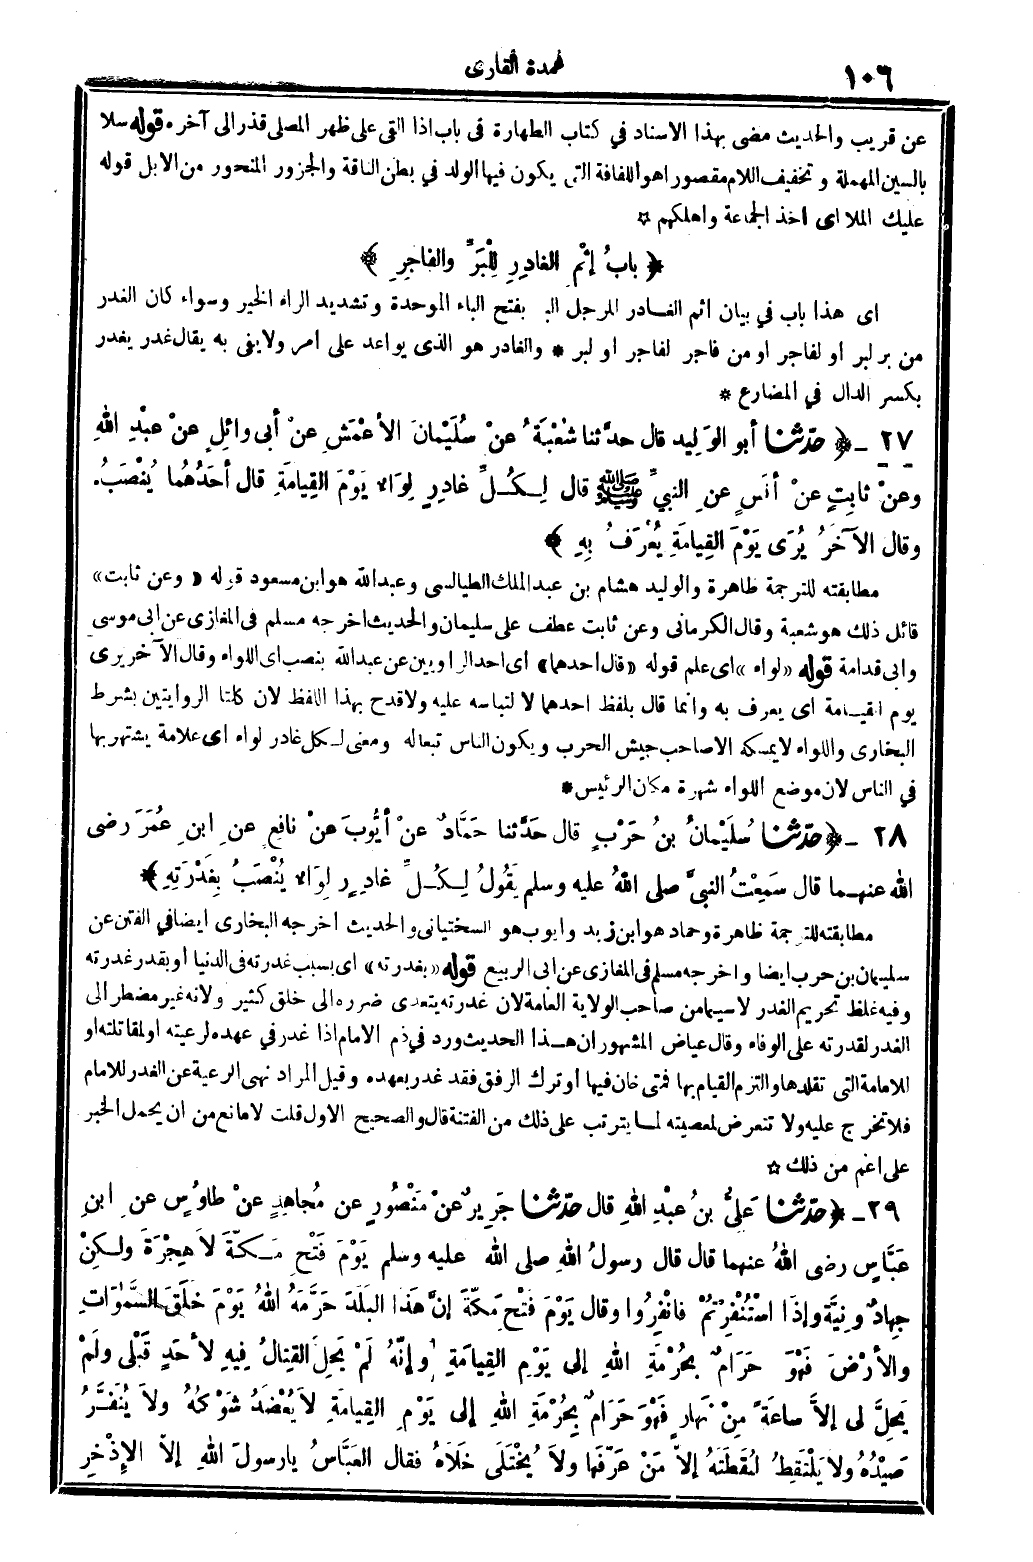 ١٠٦
عمدة القارى
عن قريب والحديث مضى بهذا الاسناد في كتاب الطهارة فى باب اذا القى على ظهر المصلى قذر الى آخره. قوله سلا
بالسين المهملة وتخفيف اللام مقصورا هو اللفافة التى يكون فيها الولد في بطن الناقة والجزور المنحور من الابل قوله
عليك الملا اى اخذ الجماعة واهلكهم ☆
﴿ بابُ إثْمِ الغادِرِ لِلْبَرِّ والفاجِرِ ﴾
اى هذا باب في بيان اثم الغادر للرجل البر بفتح الباء الموحدة وتشديد الراء الخير وسواء كان الغدر
من بر لبر او لفاجر او من فاجر لفاجر او لبر * والغادر هو الذى يواعد على امر ولا يفى به يقال غدر يغدر
بكسر الدال في المضارع *
٢٧ - ﴿ حدّثنا أبو الوَلِيد قال حدَّثنا شُعْبَةُ عنْ سُلَيْمانَ الأعْمَشِ عنْ أبى وائِلٍ عنْ عبْدِ اللهِ
وعنْ ثابِتٍ عنْ أنَسٍ عنِ النبيِّ ﷺ قال لِكُلِّ غادِرٍ لِوَاءٌ يَوْمَ القِيامَةِ قال أحَدُهُما يُنْصَبُ.
وقال الآخَرُ يُرَى يَوْمَ القِيامَةِ يُعْرَفُ بِهِ ﴾
مطابقته للترجمة ظاهرة والوليد هشام بن عبد الملك الطيالسى وعبد الله هو ابن مسعود قوله « وعن ثابت»
قائل ذلك هو شعبة وقال الكرمانى وعن ثابت عطف على سليمان والحديث اخرجه مسلم فى المغازى عن ابى موسى
وابى قدامة قوله «لواء» اى علم قوله «قال احدهما» اى احد الراويين عن عبد الله ينصب اى اللواء وقال الآخر يرى
يوم القيامة اى يعرف به وانما قال بلفظ احدهما لا لتباسه عليه ولا قدح بهذا اللفظ لان كلتا الروايتين بشرط
البخارى واللواء لا يمسكه الا صاحب جيش الحرب ويكون الناس تبعاله ومعنى لكل غادر لواء اى علامة يشتهر بها
في الناس لان موضع اللواء شهرة مكان الرئيس *
٢٨ - ﴿ حدّثنا سُلَيْمانُ بنُ حَرْبٍ قال حَدَّثنا حَمَّادٌ عنْ أيُّوبَ عنْ نافِعٍ عنِ ابنِ عُمَرَ رضى
الله عنهما قال سَمِعْتُ النبيَّ صلى اللهُ عليه وسلم يَقُولُ لِكُلِّ غادِرٍ لِوَاءٌ يُنْصَبُ بِغَدْرَتِهِ ﴾
مطابقته للترجمة ظاهرة وحماد هو ابن زيد وايوب هو السختيانى والحديث اخرجه البخارى ايضا في الفتن عن
سليمان بن حرب ايضا واخرجه مسلم فى المغازى عن ابى الربيع قوله «بغدرته» اى بسبب غدرته فى الدنيا او بقدر غدرته
وفيه غلظ تحريم الغدر لا سيما من صاحب الولاية العامة لان غدرته يتعدى ضرره الى خلق كثير ولانه غير مضطر الى
الغدر لقدرته على الوفاء وقال عياض المشهور ان هذا الحديث ورد في ذم الامام اذا غدر في عهده لرعيته او لمقاتلته او
للامامة التى تقلدها والتزم القيام بها فمتى خان فيها او ترك الرفق فقد غدر بعهده وقيل المراد نهى الرعية عن الغدر للامام
فلا تخرج عليه ولا تتعرض لمعصيته لما يترتب على ذلك من الفتنة قال والصحيح الاول قلت لا مانع من ان يحمل الخبر
على اعم من ذلك ☆
٢٩ - ﴿ حدّثنا عَلىُّ بنُ عبْدِ اللهِ قال حدّثنا جَرِيرٌ عنْ مَنْصُورٍ عن مُجاهِدٍ عنْ طاوُسٍ عنِ ابنِ
عَبَّاسٍ رضى اللهُ عنهما قال قال رسولُ اللهِ صلى الله عليه وسلم يَوْمَ فَتْحِ مَكَّةَ لاَ هِجْرَةَ ولكِنْ
جِهادٌ ونِيَّةٌ وإذَا اسْتُنْفِرْتُمْ فانْفِرُوا وقال يَوْمَ فَتْحِ مَكّةَ إنَّ هَذَا البلَدَ حَرَّمَهُ اللهُ يَوْمَ خَلَقَ السَّمٰوَاتِ
والأرْضَ فَهْوَ حَرَامٌ بِحُرْمَةِ اللهِ إلى يَوْمِ القِيامَةِ وإنَّهُ لَمْ يَحِلَّ القِتالُ فِيهِ لأحَدٍ قَبْلِى ولَمْ
يَحِلَّ لى إلاَّ ساعَةً مِنْ نَهارٍ فَهْوَ حَرَامٌ بِحُرْمَةِ اللهِ إلى يَوْمِ القِيامَةِ لاَ يُعْضَدُ شَوْكُهُ ولاَ يُنَفَّرُ
صَيْدُهُ ولا يَلْتَقِطُ لُقَطَتَهُ إلاَّ مَنْ عَرّفَها ولاَ يُخْتَلَى خَلاَهُ فقال العَبَّاسُ يارسولَ اللهِ إلاّ الإذْخِرِ